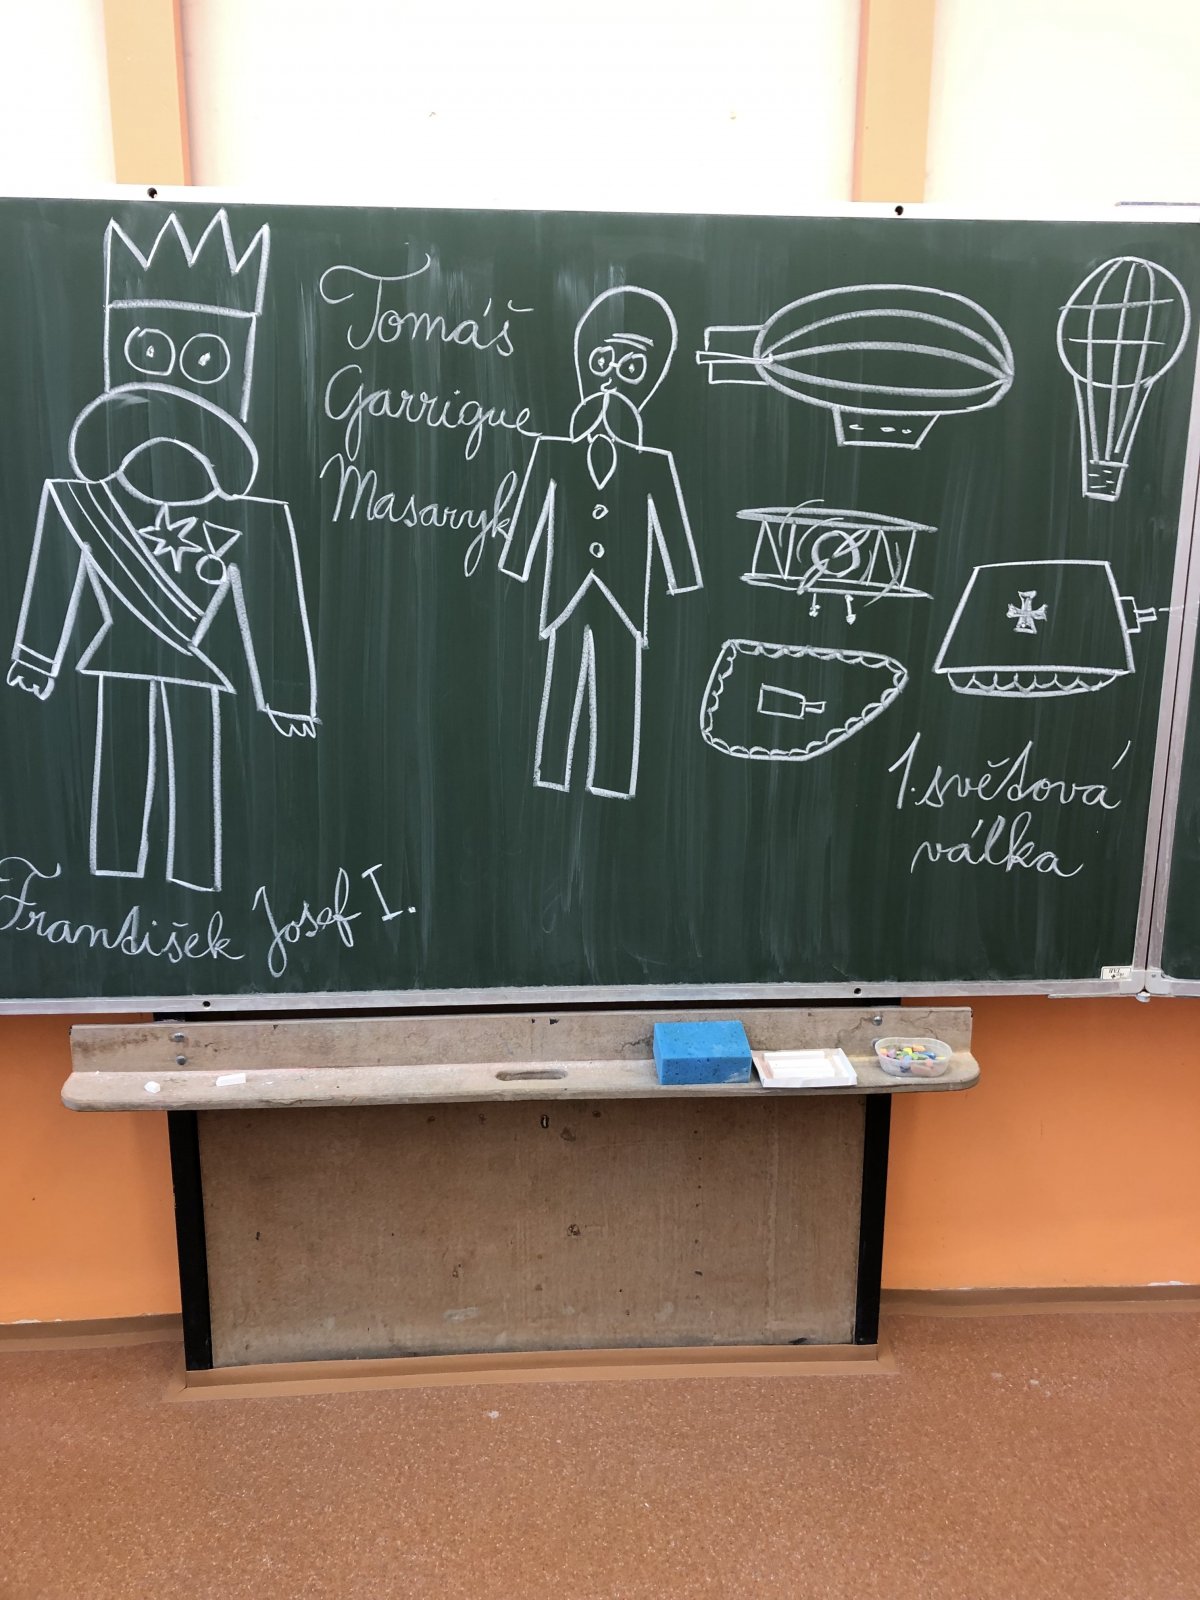 Tomáš
Garrigue
Masaryk
1. světová
válka
František Josef I.